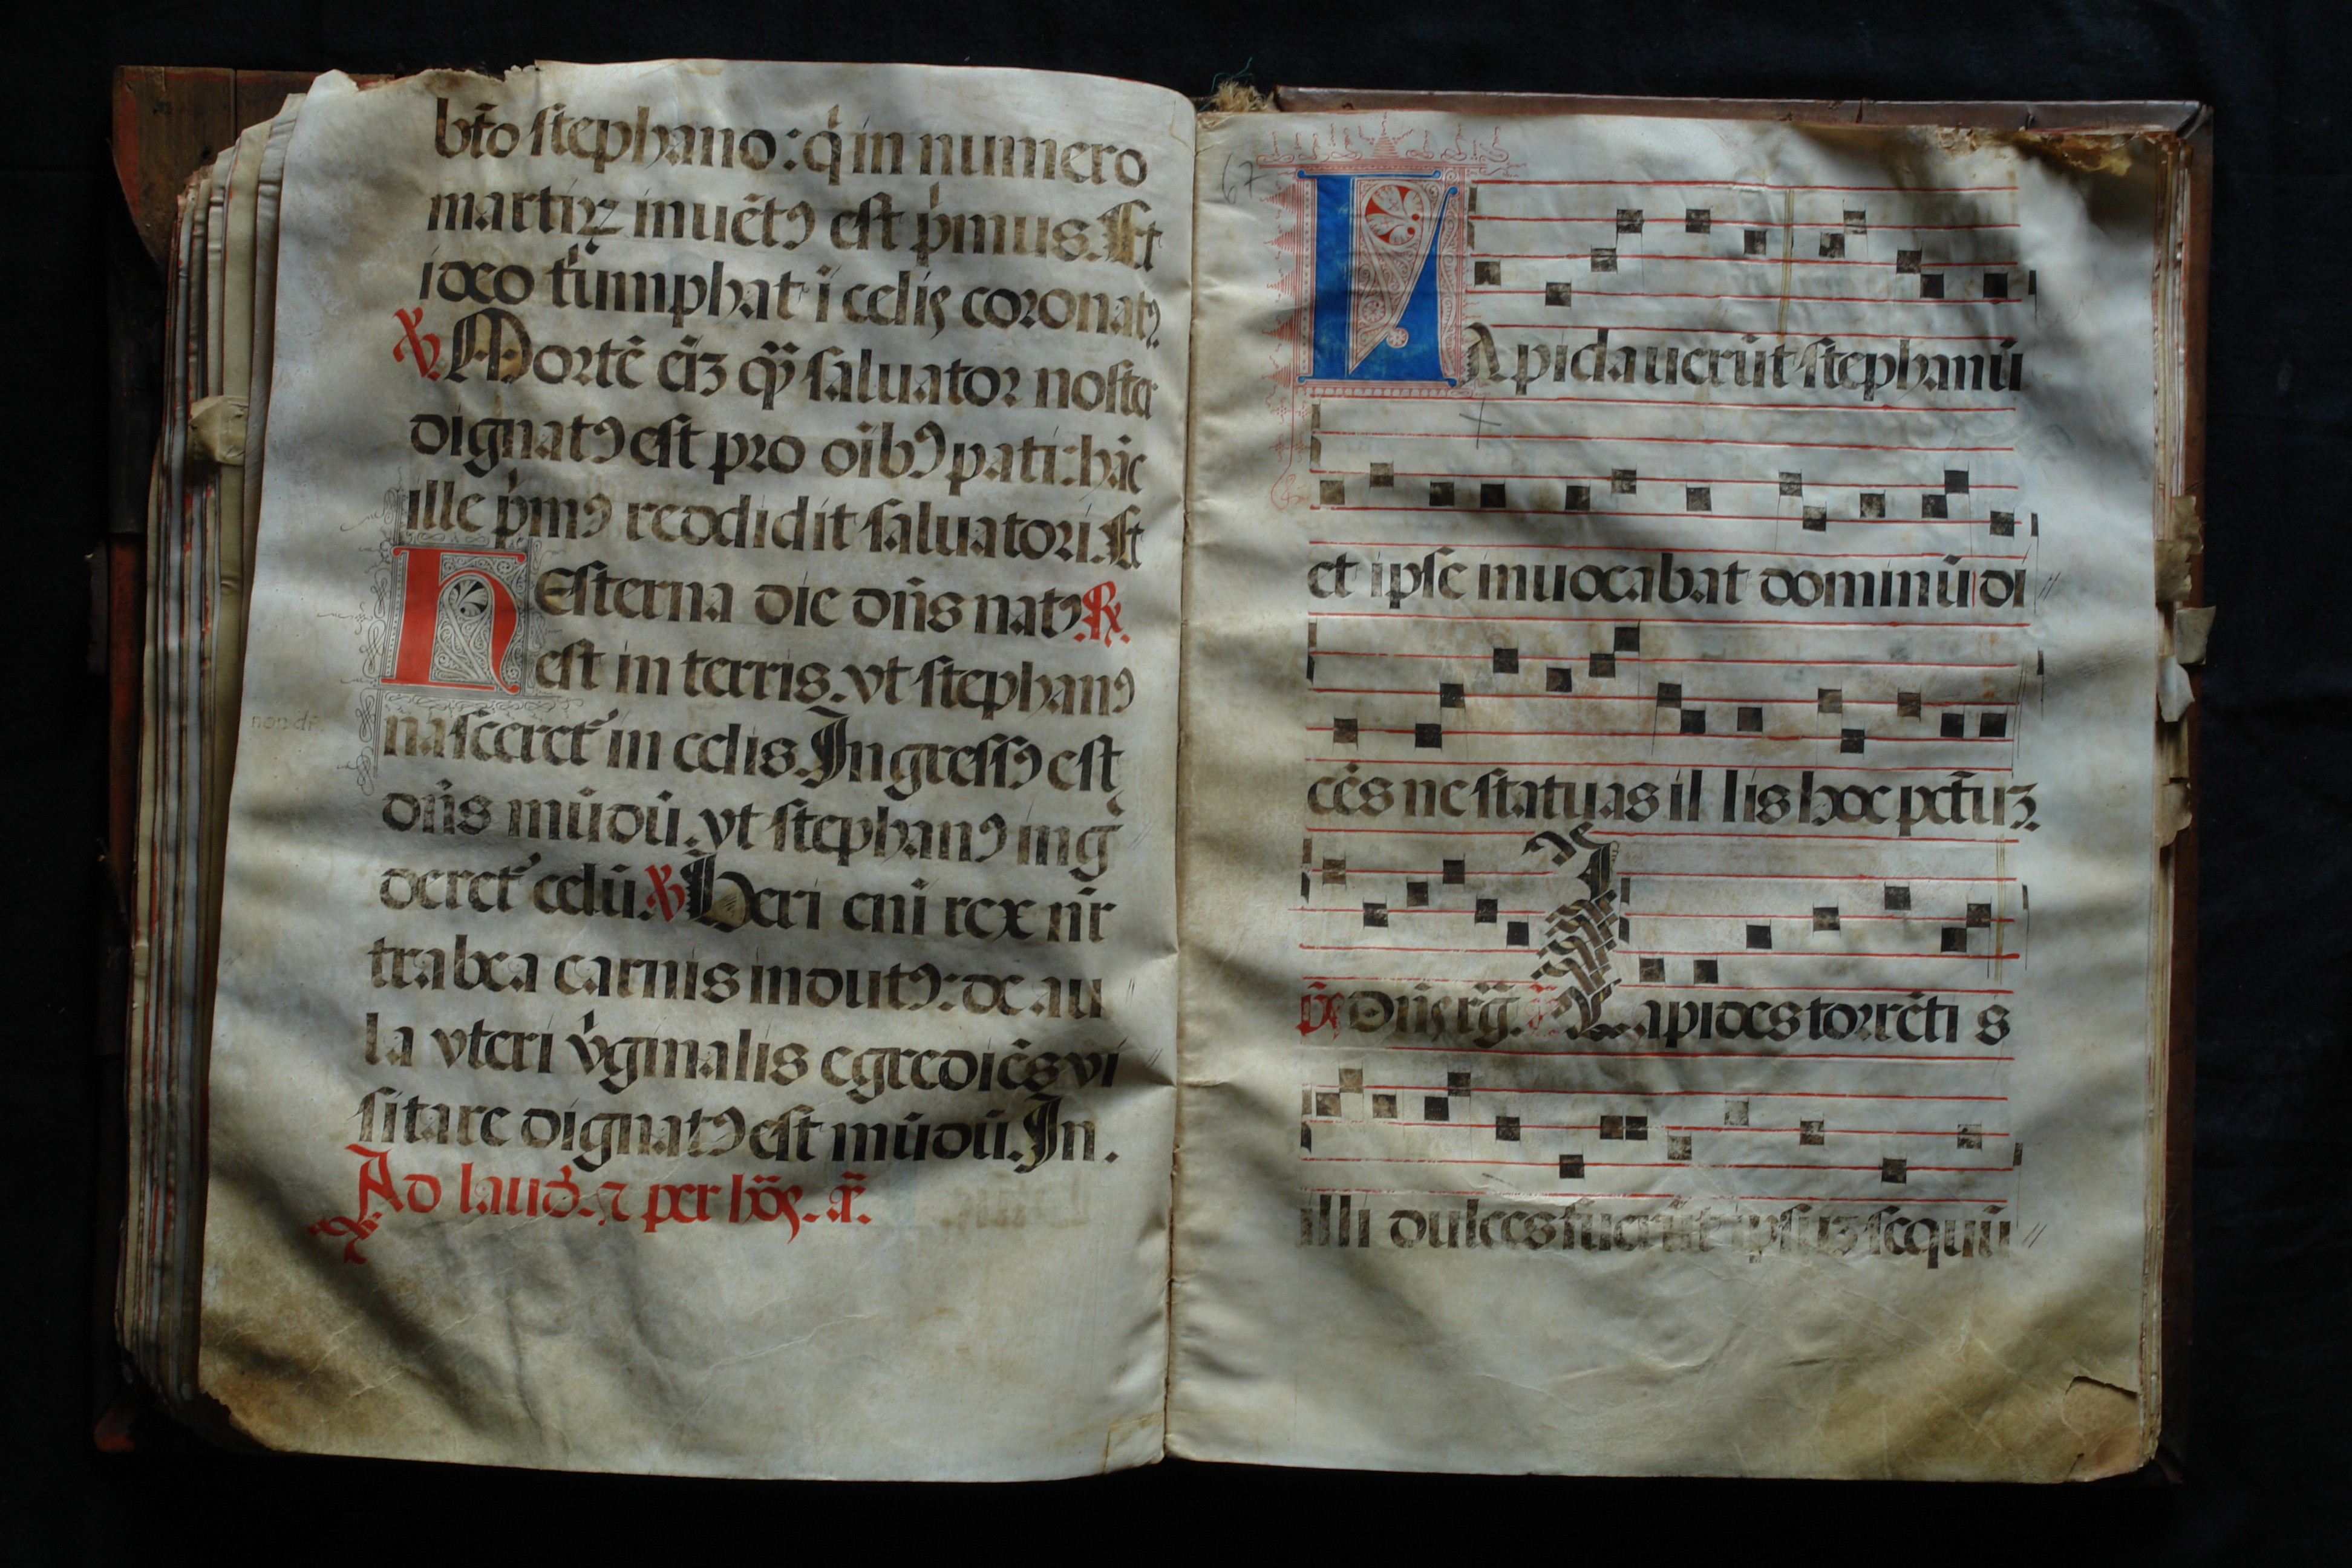 bt̄o stephano: q̇ in numero
martiꝝ inuētꝰ est pͥmus. Et
ideo tͥumphat ī celis coronatꝰ
℣. Mortē eīʒ qͣʒ saluator noster
dignatꝰ est pro oībꝰ pati: hāc
ille pͥmꝰ reddidit saluatori. Et
Hesterna die dn̄s natꝰ ℟.
est in terris. vt stephanꝰ
nasceret᷑ in celis. Ingressꝰ est
dn̄s mūdū. vt stephanꝰ ing̃
deret᷑ celū. ℣ Heri eni rex nr̄
trabea carnis indutꝰ: de au
la vteri vͥginalis egrediēs vi
sitare dignatꝰ est mūdū. In.
Ad laud̃. ⁊ per hō℥. añ.
67
non di
LApidauerūt stephanū
et ipse inuocabat dominū di
cēs ne statuas il lis hoc pctūʒ.
p̄s Dn̄s rg̃. añ Lapides torrēti s
illi dulces fuerūt ipsuʒ sequū